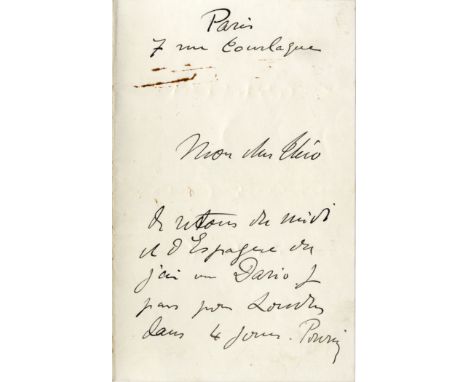 Paris
7 rue
Mon cher Théo
de retour du midi
et d'Espagne où
j'ai vu Dario je
pars pour Londres
dans 4 jours.